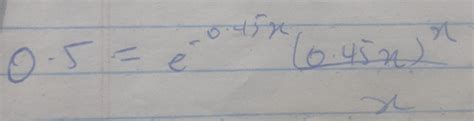 0.5 = e^{-0.45x} \frac{(0.45x)^x}{x}